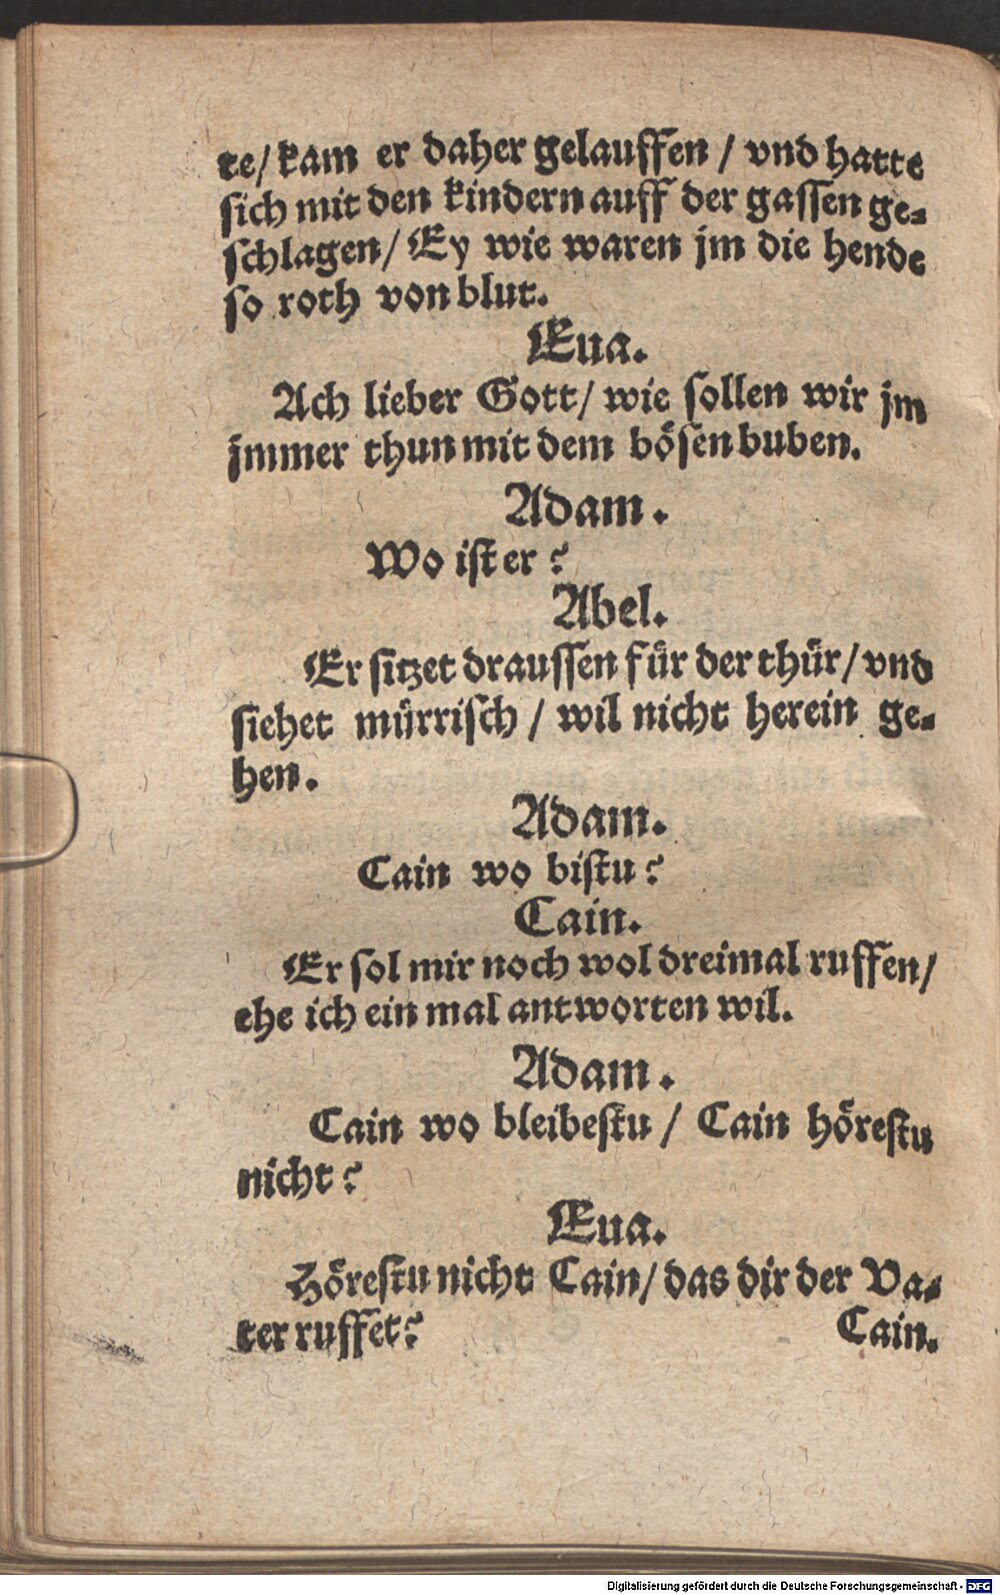 te/ kam er daher gelauffen / vnd hatte
sich mit den kindern auff der gassen ge-
schlagen/ Ey wie waren jm die hende
so roth von blut.
Eua.
Ach lieber Gott/ wie sollen wir jm
jmmer thun mit dem bösen buben.
Adam.
Wo ist er?
Abel.
Er sitzet draussen für der thür/ vnd
siehet mürrisch / wil nicht herein ge-
hen.
Adam.
Cain wo bistu?
Cain.
Er sol mir noch wol dreimal ruffen/
ehe ich ein mal antworten wil.
Adam.
Cain wo bleibestu / Cain hörestu
nicht?
Eua.
Hörestu nicht Cain/ das dir der Va-
ter ruffet? Cain.
Digitalisierung gefördert durch die Deutsche Forschungsgemeinschaft - DFG